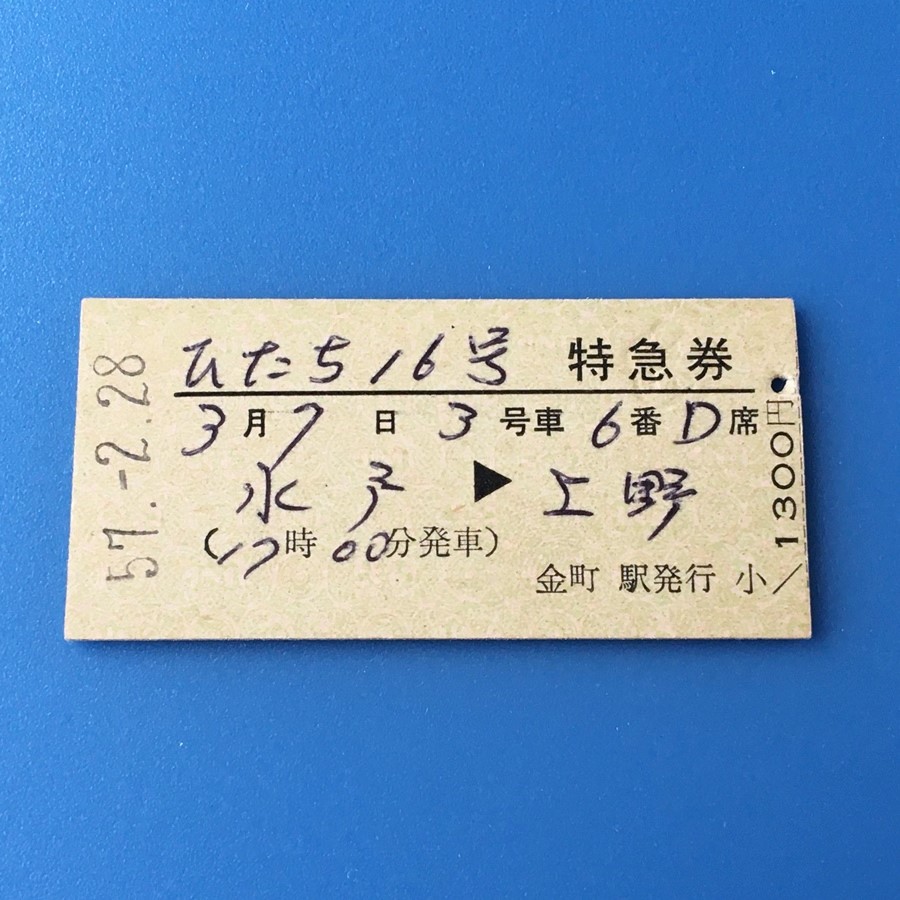 57.-2.28
ひたち16号 特急券
3月7日 3号車 6番D席
水戸▶上野
(17時00分発車)
金町 駅発行 小
1300円